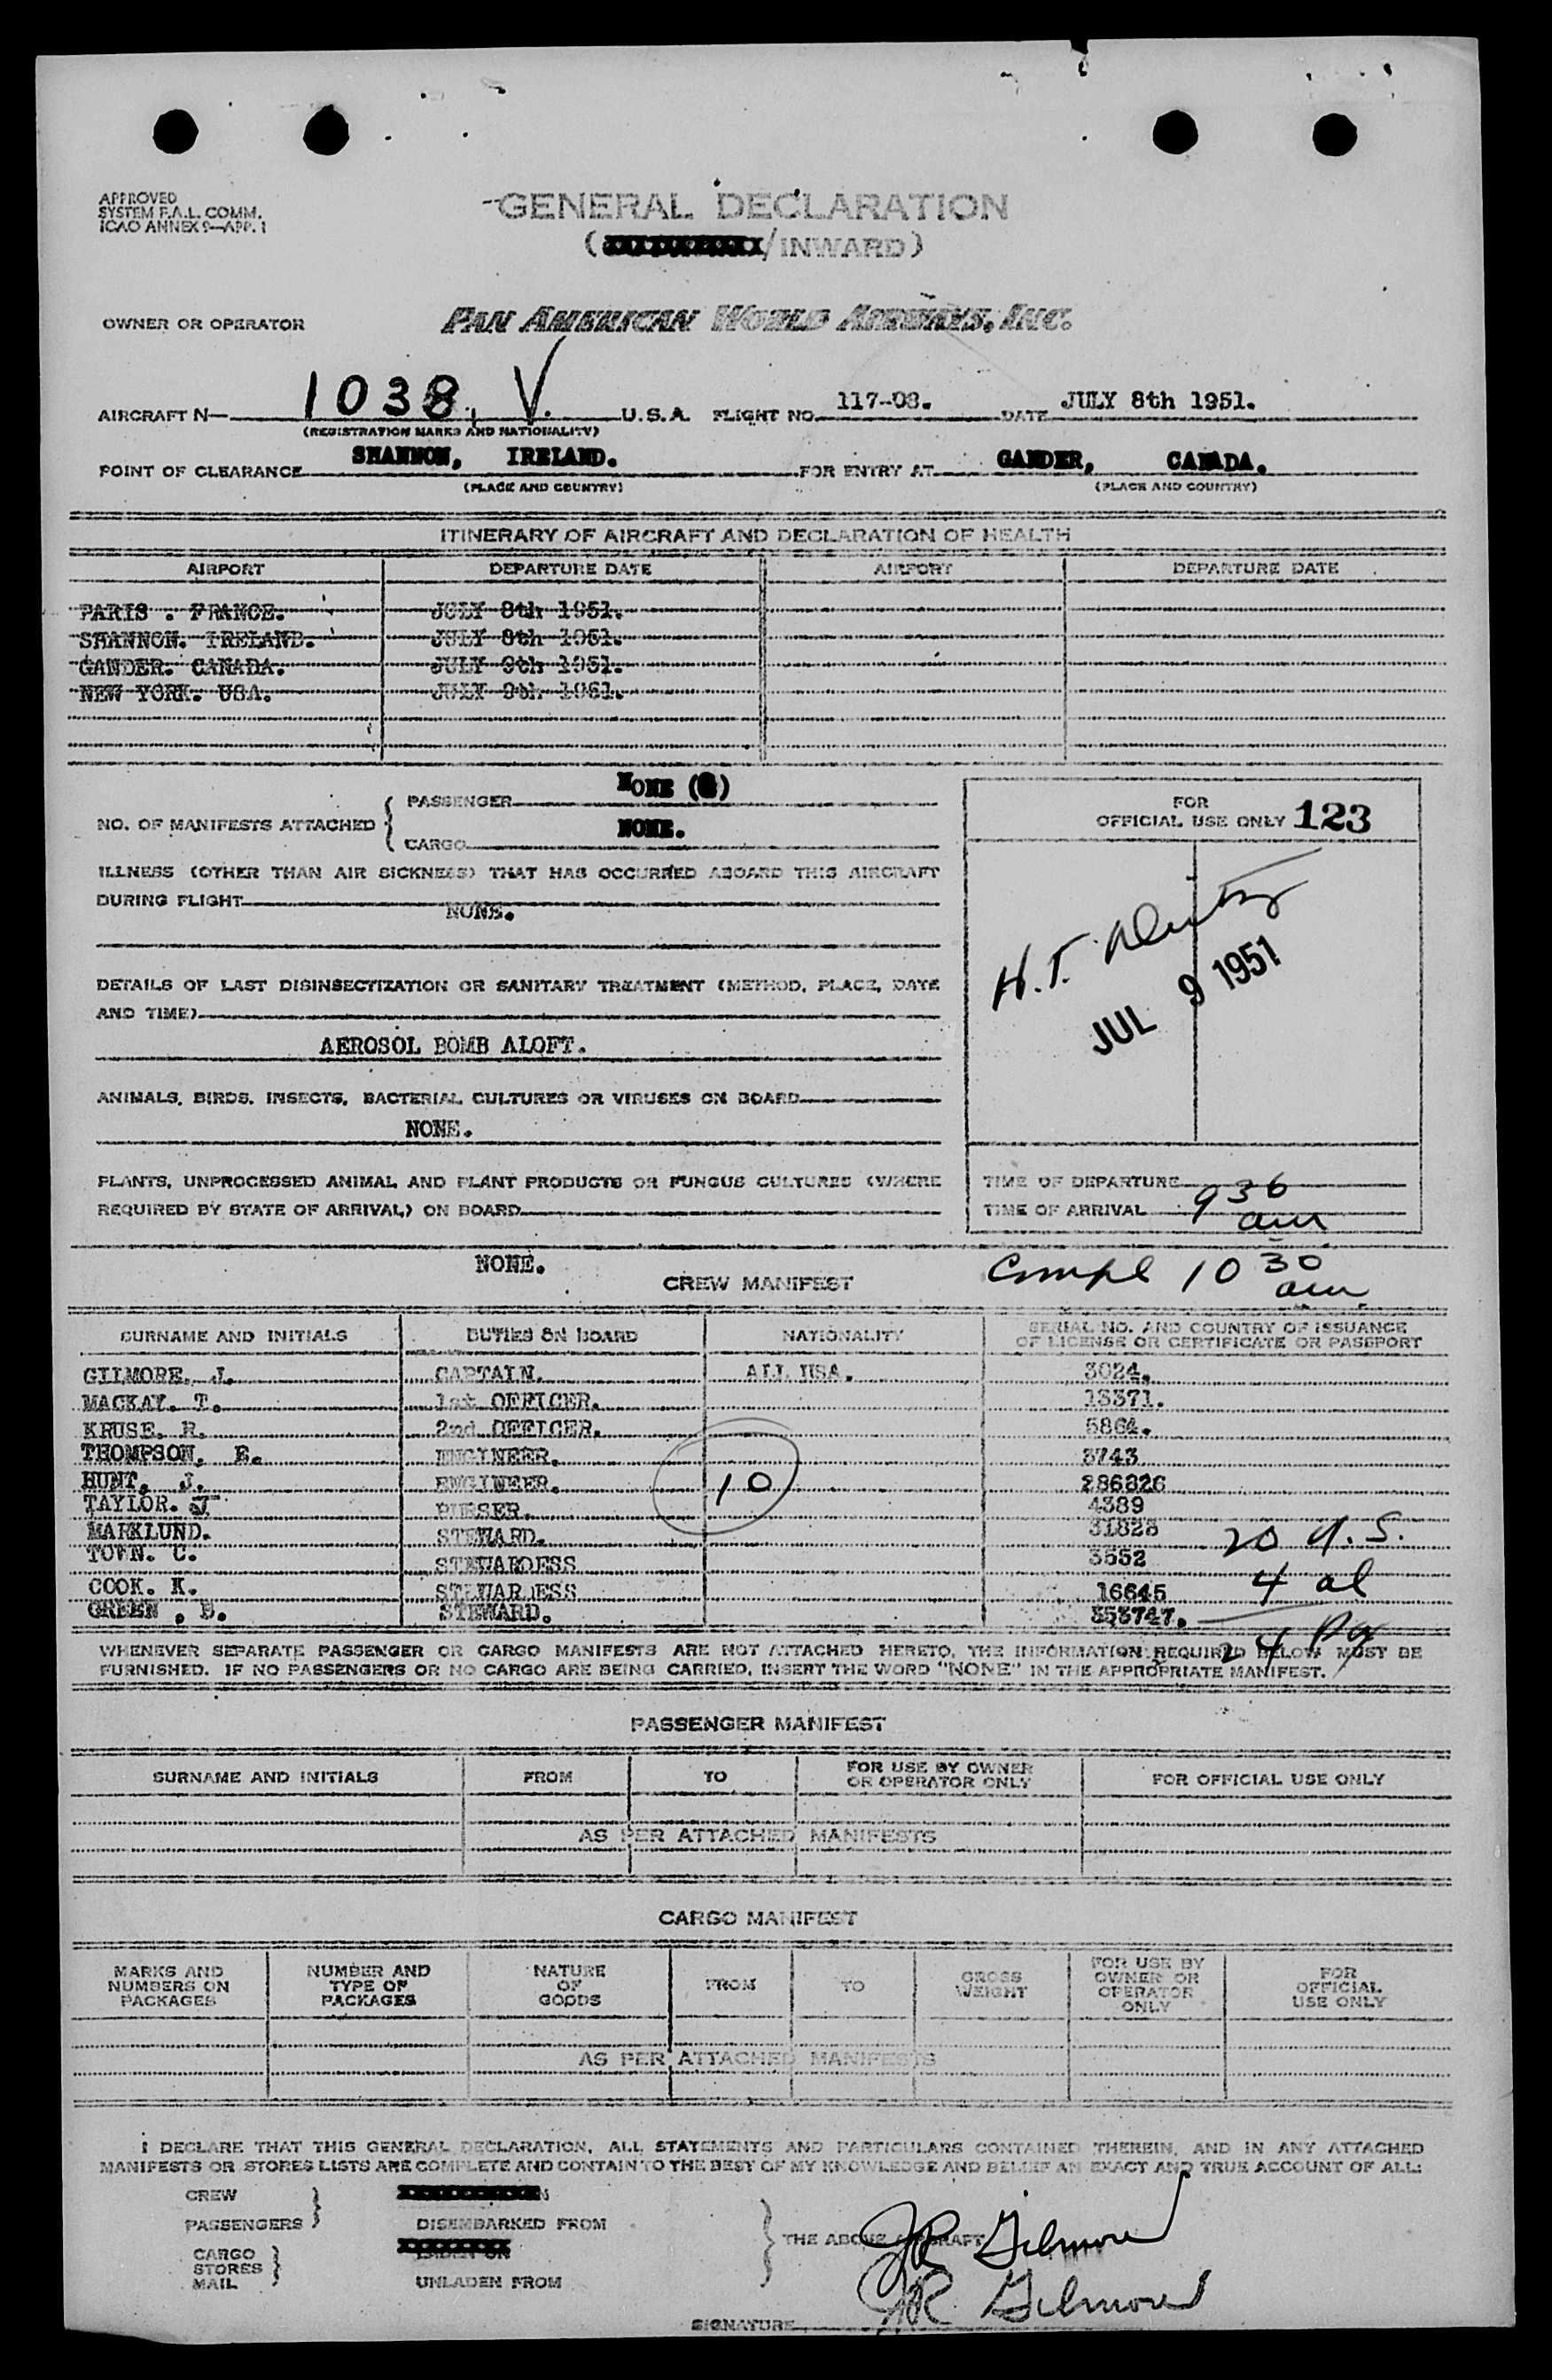 APPROVED
SYSTEM F.A.L. COMM.
ICAO ANNEX 9—APP. 1
GENERAL DECLARATION
(/INWARD)
OWNER OR OPERATOR PAN AMERICAN WORLD AIRWAYS, INC.
AIRCRAFT N— 1038 V. U.S.A. FLIGHT NO. 117-08. DATE JULY 8th 1951.
(REGISTRATION MARKS AND NATIONALITY)
POINT OF CLEARANCE SHANNON, IRELAND. FOR ENTRY AT GANDER, CANADA.
(PLACE AND COUNTRY) (PLACE AND COUNTRY)
ITINERARY OF AIRCRAFT AND DECLARATION OF HEALTH
AIRPORT DEPARTURE DATE AIRPORT DEPARTURE DATE
PARIS . FRANCE. JULY 8th 1951.
SHANNON. IRELAND. JULY 8th 1951.
GANDER. CANADA. JULY 9th 1951.
NEW YORK. USA. JULY 9th 1951.
NO. OF MANIFESTS ATTACHED
PASSENGER NONE
CARGO NONE.
FOR
OFFICIAL USE ONLY 123
ILLNESS (OTHER THAN AIR SICKNESS) THAT HAS OCCURRED ABOARD THIS AIRCRAFT
DURING FLIGHT
NONE.
H.T.
JUL 9 1951
DETAILS OF LAST DISINSECTIZATION OR SANITARY TREATMENT (METHOD, PLACE, DATE
AND TIME)
AEROSOL BOMB ALOFT.
ANIMALS, BIRDS, INSECTS, BACTERIAL CULTURES OR VIRUSES ON BOARD
NONE.
PLANTS, UNPROCESSED ANIMAL AND PLANT PRODUCTS OR FUNGUS CULTURES (WHERE
REQUIRED BY STATE OF ARRIVAL) ON BOARD
NONE.
TIME OF DEPARTURE
TIME OF ARRIVAL 9 36 am
Compl 10 30 am
CREW MANIFEST
SURNAME AND INITIALS DUTIES ON BOARD NATIONALITY SERIAL NO. AND COUNTRY OF ISSUANCE
OF LICENSE OR CERTIFICATE OR PASSPORT
GILMORE. J. CAPTAIN. ALL USA. 3024.
MACKAY. T. 1st OFFICER. 13371.
KRUSE. R. 2nd OFFICER. 5864.
THOMPSON, E. ENGINEER. 3743
HUNT, J. ENGINEER. 10 286826
TAYLOR. J PURSER. 4389
MARKLUND. STEWARD. 31828 20 U.S.
TOWN. C. STEWARDESS 3552
COOK. K. STEWARDESS 16645 4 al
GREEN . B. STEWARD. 353747.
24 Pg
WHENEVER SEPARATE PASSENGER OR CARGO MANIFESTS ARE NOT ATTACHED HERETO, THE INFORMATION REQUIRED BELOW MUST BE
FURNISHED. IF NO PASSENGERS OR NO CARGO ARE BEING CARRIED, INSERT THE WORD "NONE" IN THE APPROPRIATE MANIFEST.
PASSENGER MANIFEST
SURNAME AND INITIALS FROM TO FOR USE BY OWNER
OR OPERATOR ONLY FOR OFFICIAL USE ONLY
AS PER ATTACHED MANIFESTS
CARGO MANIFEST
MARKS AND
NUMBERS ON
PACKAGES
NUMBER AND
TYPE OF
PACKAGES
NATURE
OF
GOODS
FROM
TO
GROSS
WEIGHT
FOR USE BY
OWNER OR
OPERATOR
ONLY
FOR
OFFICIAL
USE ONLY
AS PER ATTACHED MANIFESTS
I DECLARE THAT THIS GENERAL DECLARATION, ALL STATEMENTS AND PARTICULARS CONTAINED THEREIN, AND IN ANY ATTACHED
MANIFESTS OR STORES LISTS ARE COMPLETE AND CONTAIN TO THE BEST OF MY KNOWLEDGE AND BELIEF AN EXACT AND TRUE ACCOUNT OF ALL:
CREW
PASSENGERS DISEMBARKED FROM
THE ABOVE AIRCRAFT JR Gilmore
CARGO LADEN ON
STORES
MAIL UNLADEN FROM
JR Gilmore
SIGNATURE